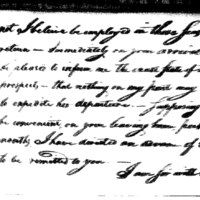 not I believe be employed in those
vection — Immediately on your arrival
be pleased to inform me the exact state of
prospects — that nothing on my part may
to expedite his departure — Supposing
be convenient on your leaving
months I have directed an
to be remitted to you —
I am Sir with